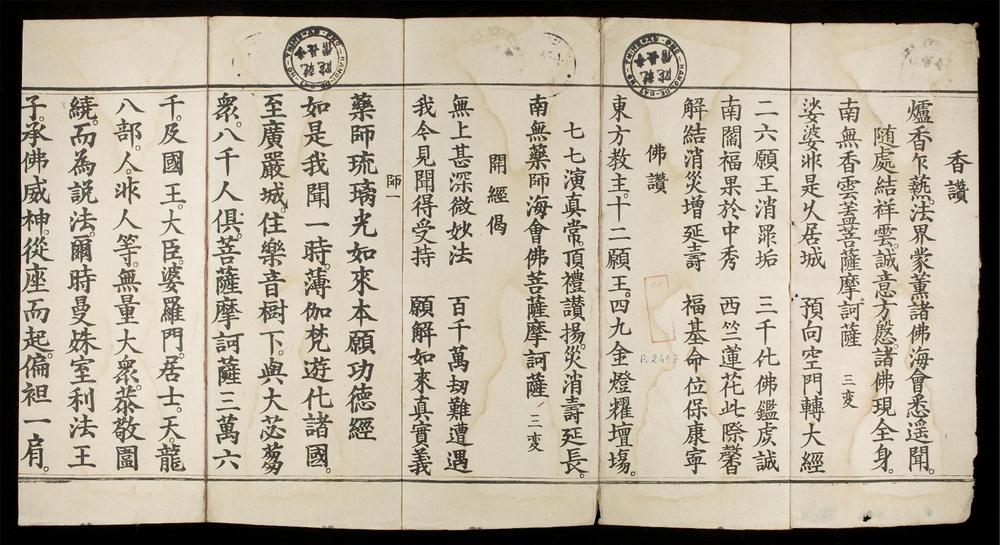 香讚
爐香乍爇。法界蒙薰諸佛海會悉遥聞。
随處結祥雲。誠意方慇。諸佛現全身。
南無香雲盖菩薩摩訶薩 三変
娑婆非是久居城 預向空門轉大經
二六願王消罪垢 三千化佛鑑虔誠
南閻福果於中秀 西竺蓮花此際馨
解結消災增延壽 福基命位保康寧
佛讚
東方教主。十二願王。四九金燈耀壇場。
七七演真常。頂禮讃揚。災消壽延長。
南無藥師海會佛菩薩摩訶薩 三変
開經偈
無上甚深微妙法 百千萬刼難遭遇
我今見聞得受持 願解如來真實義
師一
藥師琉璃光如來本願功德經
如是我聞一時。薄伽梵遊化諸國。
至廣嚴城。住樂音樹下。與大苾蒭
衆。八千人俱。菩薩摩訶薩三萬六
千。及國王。大臣。婆羅門。居士。天。龍
八部。人。非人等。無量大衆。恭敬圍
繞。而為說法。爾時曼殊室利法王
子。承佛威神。從座而起。偏袒一肩。